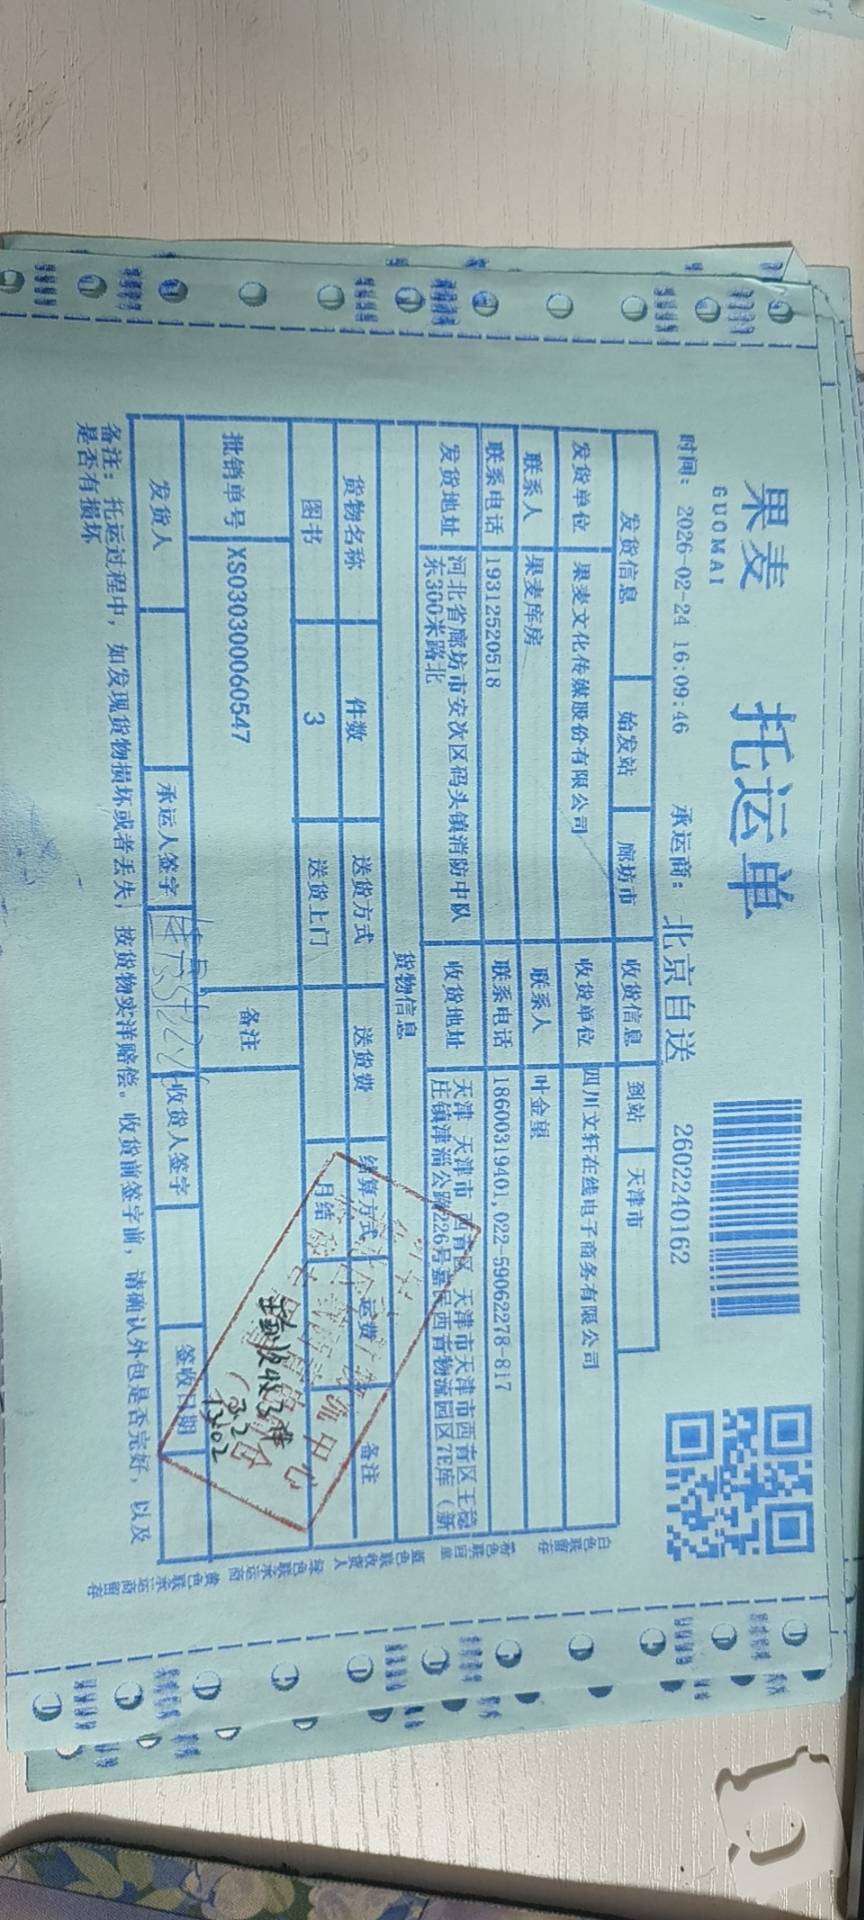 果麦
GUOMAI
托运单
时间: 2026-02-24 16:09:46 承运商: 北京自送 2602240162
发货信息 始发站 廊坊市 收货信息 到站 天津市
发货单位 果麦文化传媒股份有限公司 收货单位 四川文轩在线电子商务有限公司
联系人 果麦库房 联系人 叶金望
联系电话 19312520518 联系电话 18600319401,022-59062278-817
发货地址 河北省廊坊市安次区码头镇消防中队东300米路北 收货地址 天津 天津市 西青区 天津市天津市西青区王稳庄镇津淄公路226号嘉民西青物流园区7E库（新
货物信息
货物名称 件数 送货方式 送货费 结算方式 运费 备注
图书 3 送货上门 月结
批销单号 XS030300060547 备注
发货人 承运人签字 收货人签字 签收日期
备注: 托运过程中, 如发现货物损坏或者丢失, 按货物实洋赔偿。收货前签字前, 请确认外包是否完好, 以及
是否有损坏